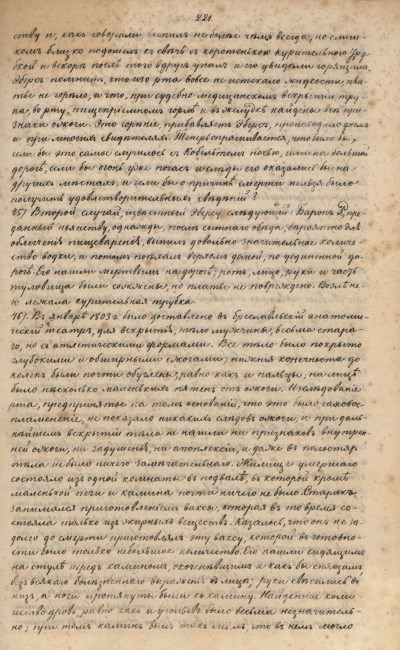 221.
ству и, какъ говорили, выпилъ не болѣе чѣмъ всегда, но слиш-
комъ близко подошелъ къ свѣчѣ съ коротенькою курительною труб-
кой и вскорѣ послѣ того вдругъ упалъ и его увидѣли горящимъ.
Эберсъ помнитъ, что изо рта вовсе не истекало жидкости, пла-
тье не горѣло, и что, при судебно-медицинскомъ вскрытіи тру-
па, во рту, пищепріемномъ горлѣ и въ желудкѣ найдены всѣ при-
знаки ожоги. Это горѣніе, прибавляетъ Эберсъ, происходило
и при многихъ свидѣтеляхъ. Теперь спрашивается, что было бы,
если бы это самое случилось съ ночью, или на большой
дорогѣ, если бы огонь уже погасъ и слѣды его оказались бы на
другихъ мѣстахъ, и если бы о причинѣ смерти нельзя было
получить удовлетворительныхъ свѣдѣній?
15) Второй случай, извѣстный Эберсу, слѣдующій: Баронъ Р. пре-
данный пьянству, однажды, послѣ сытнаго обѣда, вѣроятно для
облегченія пищеваренія, выпилъ довольно значительное количе-
ство водки, и потомъ поѣхалъ верхомъ домой, по уединенной до-
рогѣ. Его нашли мертвымъ на дорогѣ; ротъ, лицо, руки и часть
туловища были сожжены, но платье не повреждено. Возлѣ не-
го лежала курительная трубка.
16) Въ январѣ 1803 г. было доставлено въ Бреславльскій анатоми-
ческій театръ, для вскрытія, тѣло мужчины, весьма стара-
го, но съ атлетическими формами. Все тѣло было покрыто
глубокими и обширными ожогами; нижнія конечности до
колѣнъ были почти обуглены, равно какъ и пальцы, на лицѣ
было нѣсколько маленькихъ пятенъ отъ ожоги. Изслѣдованіе
рта, предпринятое на томъ основаніи, что это было самовос-
пламененіе, не показало никакихъ слѣдовъ ожоги, и при даль-
нѣйшемъ вскрытіи тѣла не нашли ни признаковъ внутрен-
ней ожоги, ни задушенія, ни апоплексіи, и даже въ полостяхъ
тѣла не было ничего замѣчательнаго. Жилище умершаго
состояло изъ одной комнаты въ подвалѣ, въ которой кромѣ
маленькой печи и камина почти ничего не было. Старикъ
занимался приготовленіемъ ваксы, которая въ то время со-
стояла только изъ жирныхъ веществъ. Казалось, что онъ не за-
долго до смерти приготовлялъ эту ваксу, которой въ готовно-
сти было только небольшое количество. Его нашли сидящимъ
на стулѣ передъ каминомъ, окоченѣвшимъ и какъ бы спящимъ
безъ всякаго болѣзненнаго выраженія въ лицѣ; руки свѣсились в-
низъ, а ноги протянуты были къ камину. Найденное коли-
чество дровъ, равно какъ и угольевъ было весьма незначитель-
но; при томъ каминъ былъ такъ малъ, что въ немъ могло